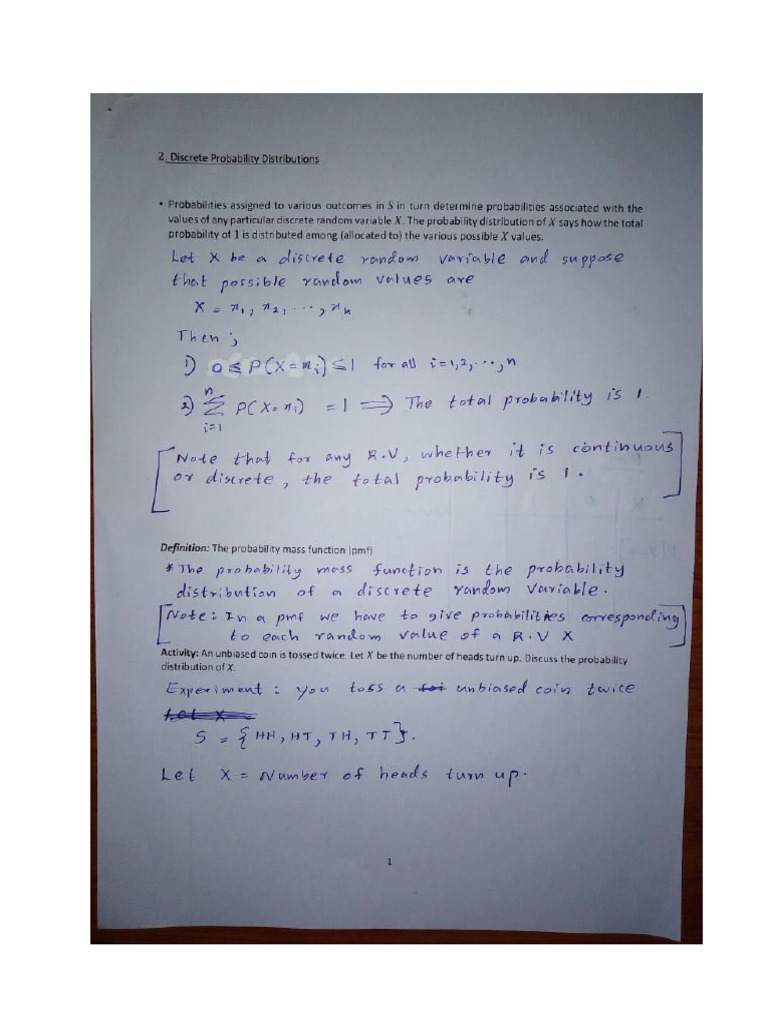 2. Discrete Probability Distributions
• Probabilities assigned to various outcomes in S in turn determine probabilities associated with the
values of any particular discrete random variable X. The probability distribution of X says how the total
probability of 1 is distributed among (allocated to) the various possible X values.
Let X be a discrete random variable and suppose
that possible random values are
X = x₁, x₂, ..., xₙ
Then ;
1) 0 ≤ P(X=xᵢ) ≤ 1 for all i=1,2,...,n
2) ∑ᵢ₌₁ⁿ P(X=xᵢ) = 1 ⟹ The total probability is 1.
[Note that for any R.V, whether it is continuous
or discrete, the total probability is 1.]
Definition: The probability mass function (pmf)
* The probability mass function is the probability
distribution of a discrete random variable.
[Note: In a pmf we have to give probabilities corresponding
to each random value of a R.V X]
Activity: An unbiased coin is tossed twice. Let X be the number of heads turn up. Discuss the probability
distribution of X.
Experiment : you toss a unbiased coin twice
Let X =
S = {HH, HT, TH, TT}.
Let X = Number of heads turn up.
1